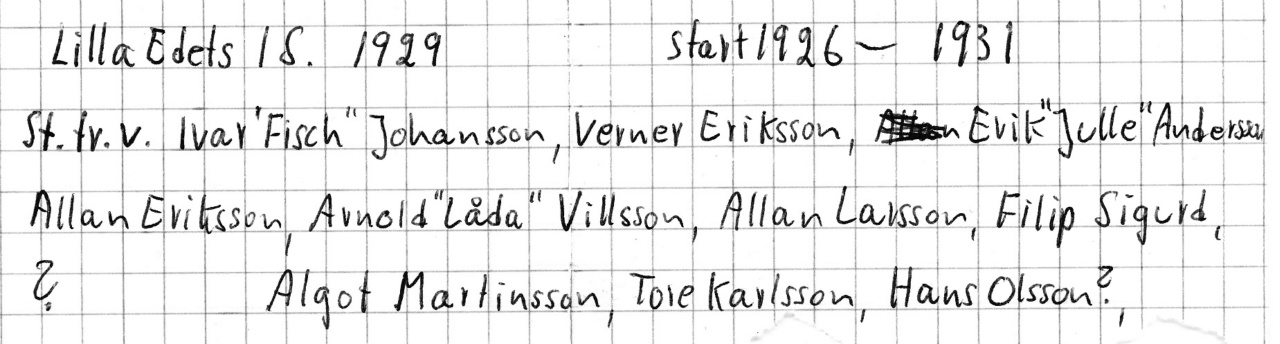 Lilla Edets IS. 1929 start 1926 – 1931
St. fr. v. Ivar "Fisch" Johansson, Verner Eriksson, Erik "Julle" Andersson
Allan Eriksson, Arnold "Låda" Villsson, Allan Larsson, Filip Sigurd,
? Algot Martinsson, Tore Karlsson, Hans Olsson?,